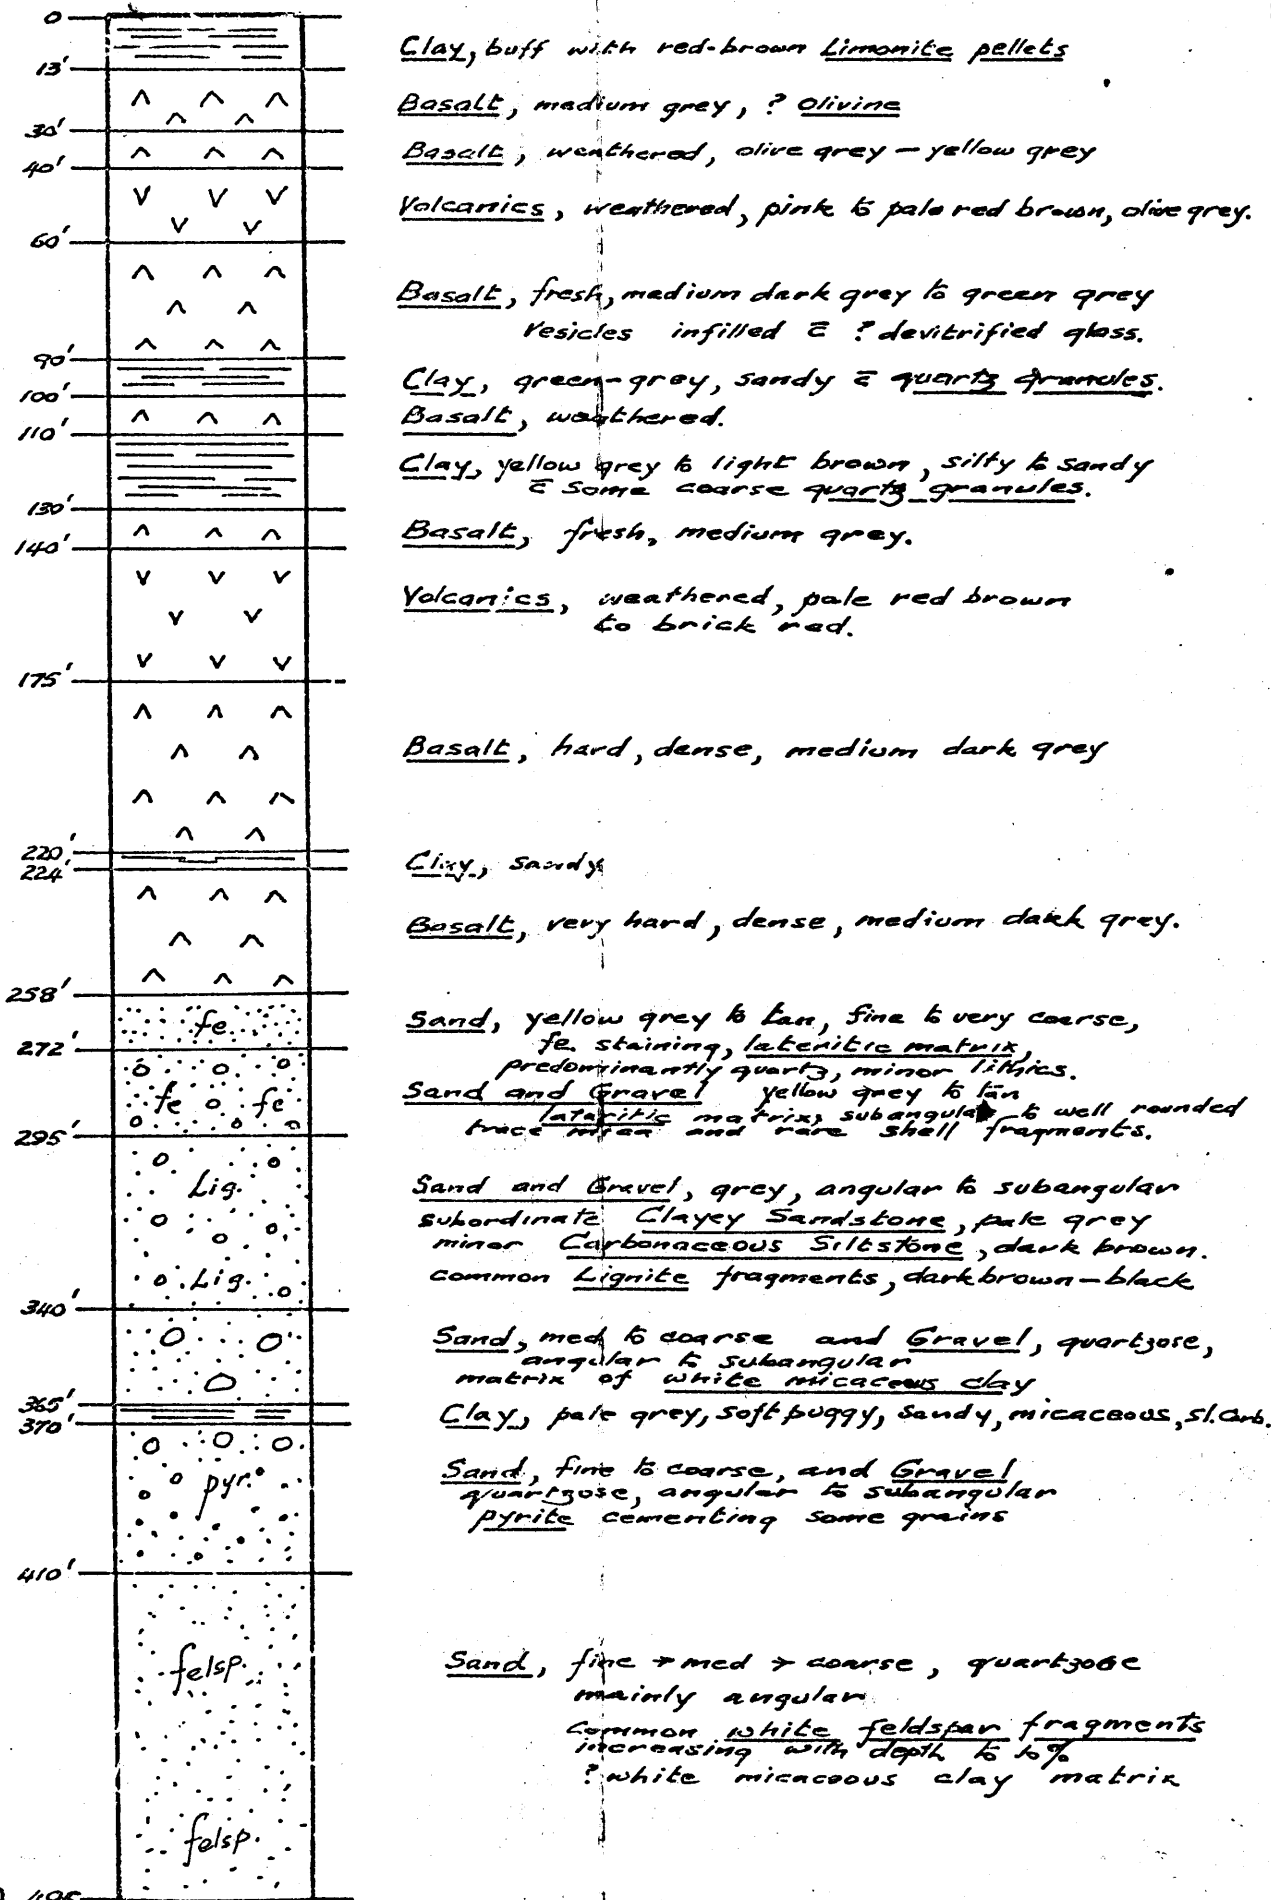 0
Clay, buff with red-brown Limonite pellets
13'
Basalt, medium grey, ? Olivine
30'
Basalt, weathered, olive grey – yellow grey
40'
Volcanics, weathered, pink to pale red brown, olive grey.
60'
Basalt, fresh, medium dark grey to green grey
vesicles infilled c̄ ? devitrified glass.
90'
Clay, green-grey, sandy c̄ quartz granules.
100'
Basalt, weathered.
110'
Clay, yellow grey to light brown, silty to sandy
c̄ some coarse quartz granules.
130'
Basalt, fresh, medium grey.
140'
Volcanics, weathered, pale red brown
to brick red.
175'
Basalt, hard, dense, medium dark grey
220'
Clay, sandy
224'
Basalt, very hard, dense, medium dark grey.
258'
fe
Sand, yellow grey to tan, fine to very coarse,
fe. staining, lateritic matrix,
predominantly quartz, minor lithics.
272'
Sand and Gravel yellow grey to tan
fe fe
lataritic matrix, subangular to well rounded
trace mica and rare shell fragments.
295'
Lig.
Sand and Gravel, grey, angular to subangular
subordinate Clayey Sandstone, pale grey
minor Carbonaceous Siltstone, dark brown.
Lig.
common Lignite fragments, dark brown – black
340'
Sand, med to coarse and Gravel, quartzose,
angular to subangular
matrix of white micaceous clay
365'
Clay, pale grey, soft puggy, sandy, micaceous, sl. Carb.
370'
pyr.
Sand, fine to coarse, and Gravel
quartzose, angular to subangular
pyrite cementing some grains
410'
felsp.
Sand, fine → med → coarse, quartzose
mainly angular
common white feldspar fragments
increasing with depth to 10%
? white micaceous clay matrix
felsp.